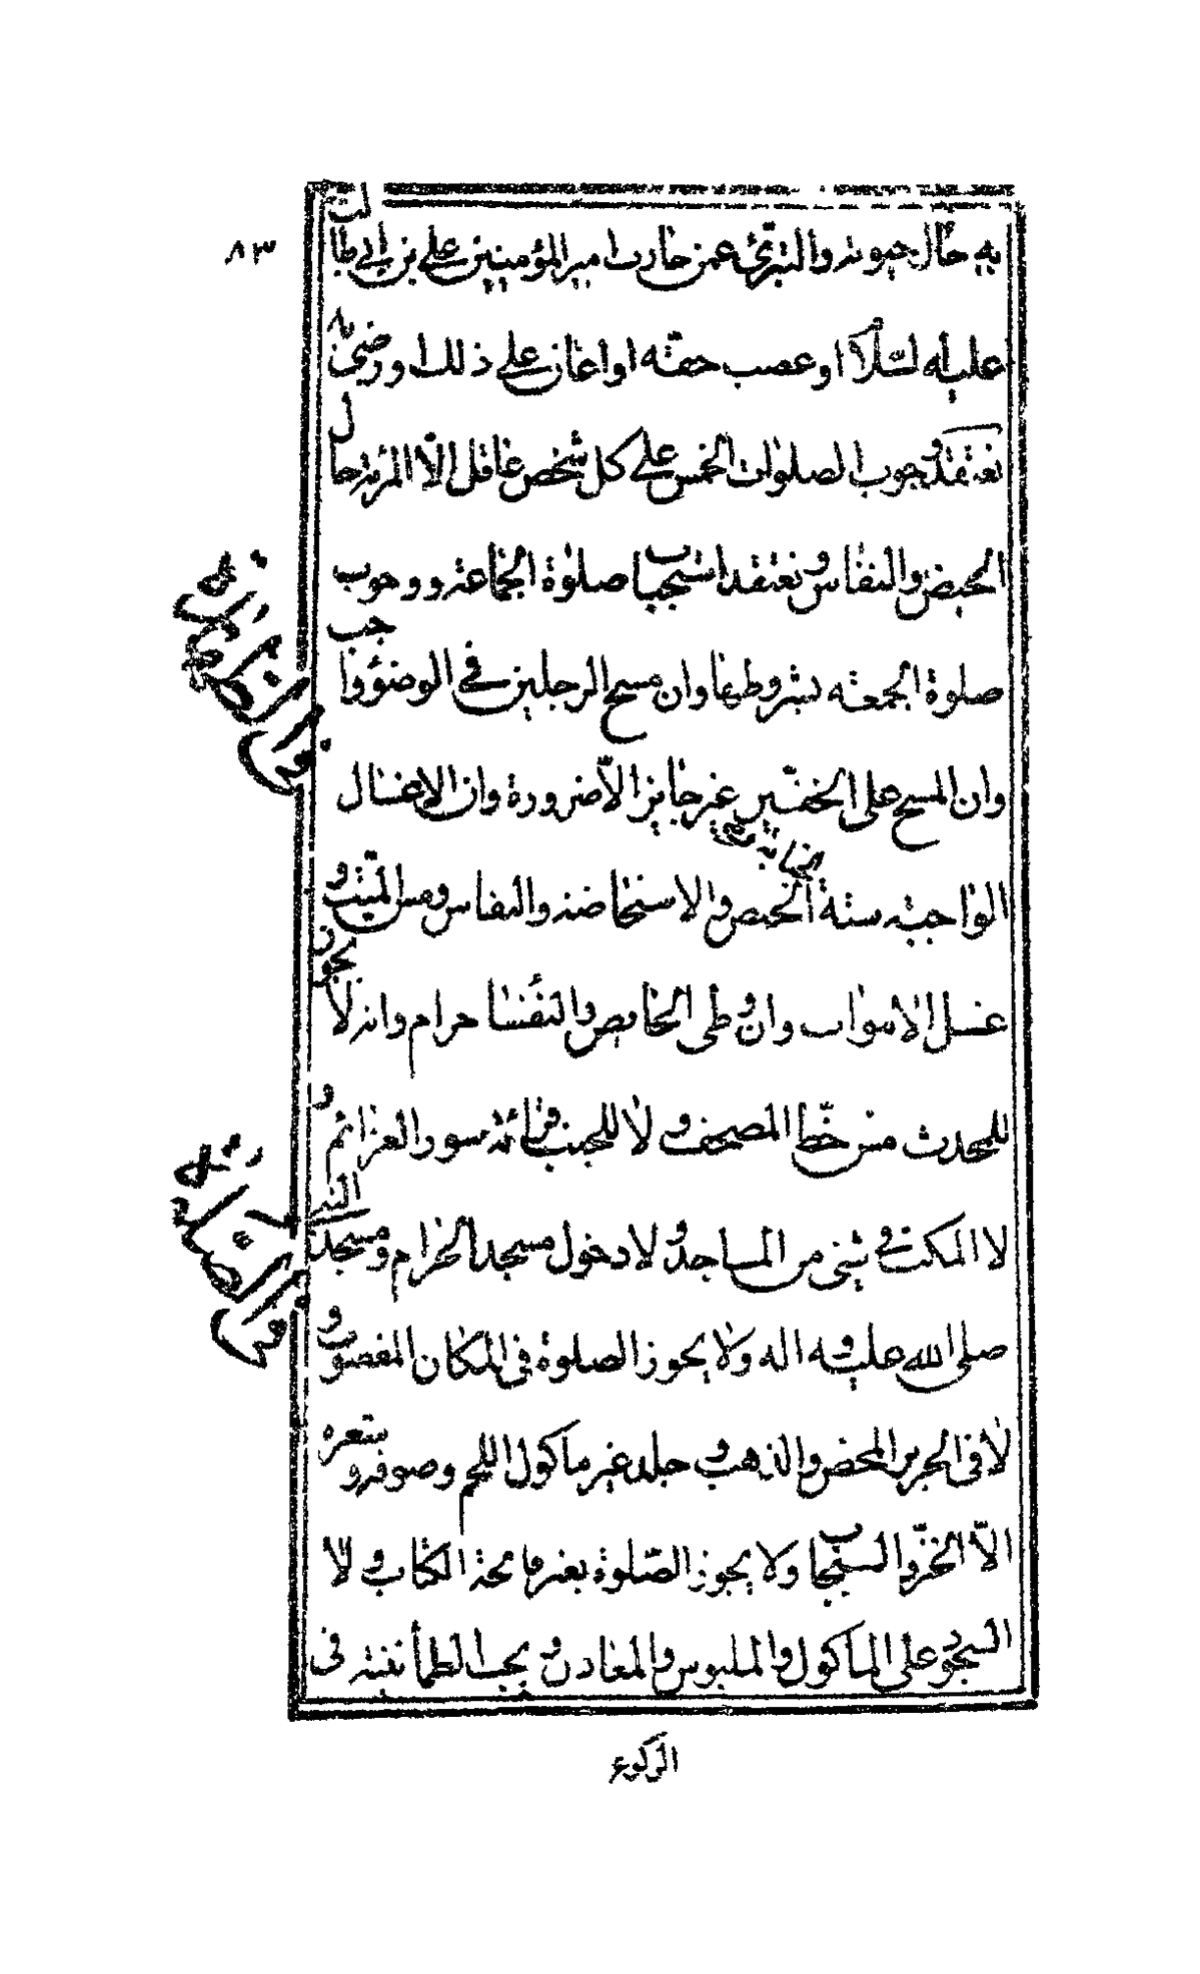 ٨٣
به حال حيوته والتبرّى عمن حارب امير المؤمنين على بن ابى طالب
عليه السّلام او غصب حقّه او اعان على ذلك او رضى به
نعتقد وجوب الصلوات الخمس على كل شخص عاقل الّا المرئة حال
الحيض والنفاس ونعتقد استحباب صلوة الجماعة ووجوب
صلوة الجمعة بشروطها وان مسح الرجلين فى الوضوء واجب
وان المسح على الخفّين غير جايز الّا ضرورة وان الاغسال
الواجبة ستة الجنابة الحيض والاستحاضة والنفاس ومس الميّت و
غسل الاموات وان وطى الحايض والنفسا حرام وانه لا يجوز
للمحدث مس خطّ المصحف ولا للجنب قرائة سور العزائم و
لا المكث فى شىء من المساجد ولا دخول مسجد الحرام ومسجد النبى
صلى الله عليه وآله ولا يجوز الصلوة فى المكان المغصوب و
لا فى الحرير المحض والذهب وجلد غير ماكول اللحم وصوفه وشعره
الّا الخزّ والسنجاب ولا يجوز الصّلوة بغير فاتحة الكتاب ولا
السجود على الماكول والملبوس والمعادن ويجب الطمأنينة فى
الركوع